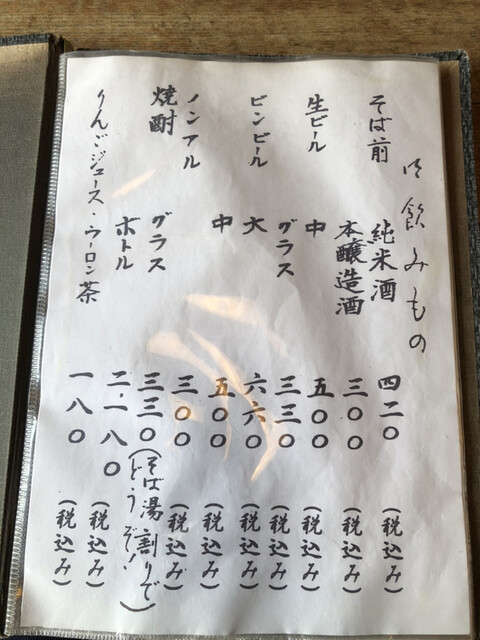 お飲みもの
そば前 純米酒 四二〇 (税込み)
本醸造酒 三〇〇 (税込み)
生ビール 中 五〇〇 (税込み)
グラス 三三〇 (税込み)
ビンビール 大 六六〇 (税込み)
中 五〇〇 (税込み)
ノンアル 三〇〇 (税込み)
焼酎 グラス 三三〇 (そば湯割りでどうぞ!)
ボトル 二.一八〇 (税込み)
りんごジュース・ウーロン茶 一八〇 (税込み)